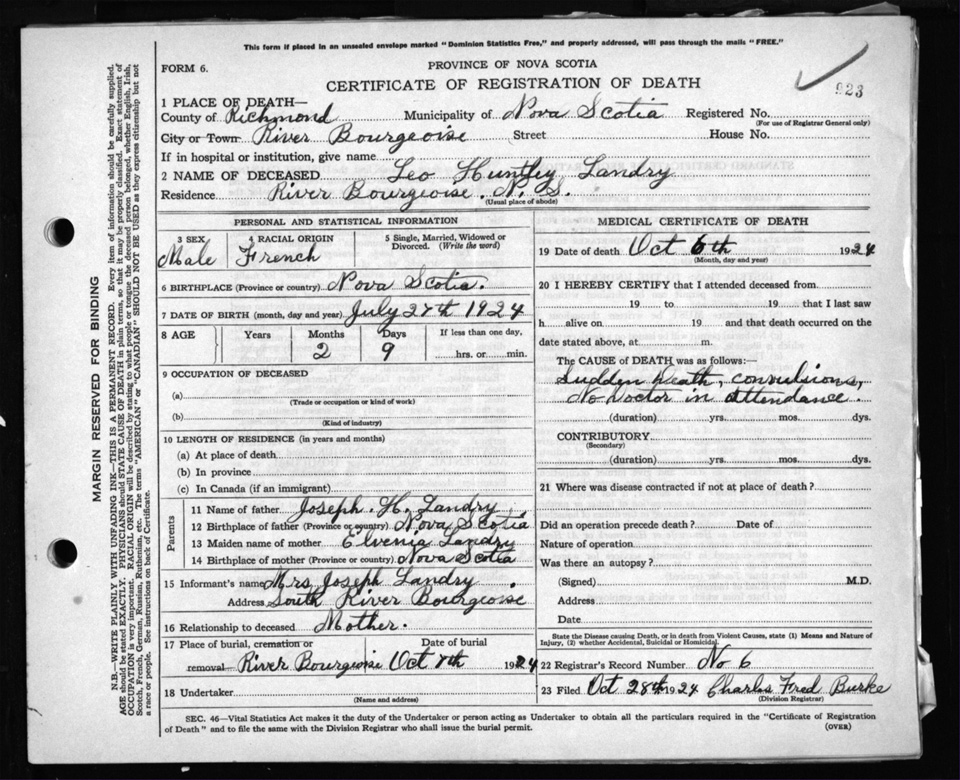 This form if placed in an unsealed envelope marked "Dominion Statistics Free," and properly addressed, will pass through the mails "FREE."
FORM 6.
PROVINCE OF NOVA SCOTIA
CERTIFICATE OF REGISTRATION OF DEATH
923
1 PLACE OF DEATH—
County of Richmond Municipality of Nova Scotia Registered No.
(For use of Registrar General only)
City or Town River Bourgeoise Street House No.
If in hospital or institution, give name
2 NAME OF DECEASED Leo Huntley Landry
Residence River Bourgeoise. N. S.
(Usual place of abode)
PERSONAL AND STATISTICAL INFORMATION
3 SEX 4 RACIAL ORIGIN 5 Single, Married, Widowed or Divorced. (Write the word)
Male French
6 BIRTHPLACE (Province or country) Nova Scotia.
7 DATE OF BIRTH (month, day and year) July 27th 1924
8 AGE Years Months Days If less than one day,
2 9 hrs. or min.
9 OCCUPATION OF DECEASED
(a)
(Trade or occupation or kind of work)
(b)
(Kind of industry)
10 LENGTH OF RESIDENCE (in years and months)
(a) At place of death
(b) In province
(c) In Canada (if an immigrant)
Parents
11 Name of father Joseph. H. Landry
12 Birthplace of father (Province or country) Nova Scotia
13 Maiden name of mother Elvenia Landry
14 Birthplace of mother (Province or country) Nova Scotia
15 Informant's name Mrs Joseph Landry
Address South River Bourgeoise.
16 Relationship to deceased Mother.
17 Place of burial, cremation or removal— River Bourgeoise
Date of burial Oct 8th 1924
18 Undertaker
(Name and address)
MEDICAL CERTIFICATE OF DEATH
19 Date of death Oct 6th 1924
(Month, day and year)
20 I HEREBY CERTIFY that I attended deceased from
19 to 19 that I last saw
h alive on 19 and that death occurred on the
date stated above, at m.
The CAUSE of DEATH was as follows:—
Sudden Death, convulsions,
No Doctor in attendance.
(duration) yrs. mos. dys.
CONTRIBUTORY
(Secondary)
(duration) yrs. mos. dys.
21 Where was disease contracted if not at place of death?
Did an operation precede death? Date of
Nature of operation
Was there an autopsy?
(Signed) M.D.
Address
Date
State the Disease causing Death, or in death from Violent Causes, state (1) Means and Nature of
Injury, (2) whether Accidental, Suicidal or Homicidal.
22 Registrar's Record Number No 6
23 Filed Oct 28th 1924 Charles Fred Burke
(Division Registrar)
SEC. 46—Vital Statistics Act makes it the duty of the Undertaker or person acting as Undertaker to obtain all the particulars required in the "Certificate of Registration
of Death" and to file the same with the Division Registrar who shall issue the burial permit.
(OVER)
MARGIN RESERVED FOR BINDING
N.B.—WRITE PLAINLY WITH UNFADING INK—THIS IS A PERMANENT RECORD. Every item of information should be carefully supplied.
AGE should be stated EXACTLY. PHYSICIANS should STATE CAUSE OF DEATH in plain terms, so that it may be properly classified. Exact statement of
OCCUPATION is very important. RACIAL ORIGIN will be described by stating to what people or tongue the deceased person belonged, whether English, Irish,
Scotch, French, German, Russian, Ruthenian, etc. The terms "AMERICAN" or "CANADIAN" SHOULD NOT BE USED as they express citizenship but not
a race or people. See instructions on back of Certificate.